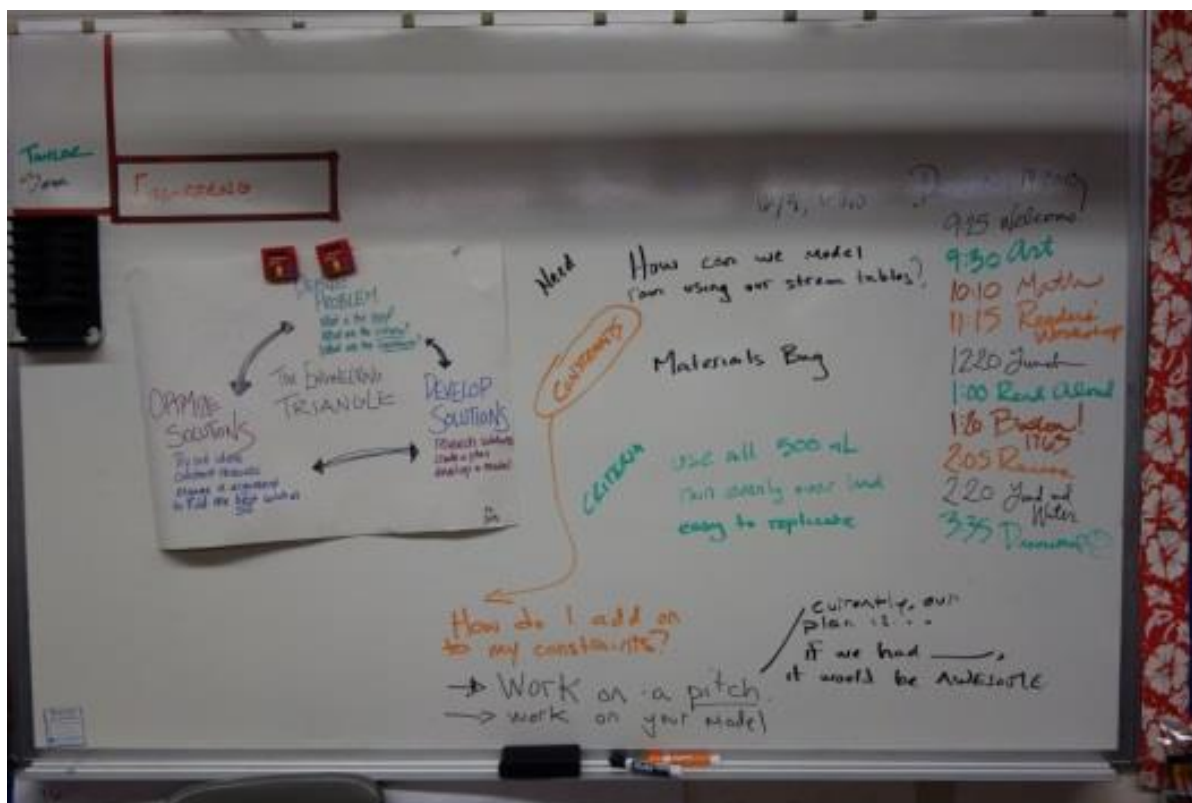 ENGINEERING
DEFINE
PROBLEM
What is the need?
What are the criteria?
What are the constraints?
THE ENGINEERING
TRIANGLE
OPTIMIZE
SOLUTIONS
Try out ideas
to find the best solution
DEVELOP
SOLUTIONS
research solutions
create a plan
develop a model
Need
How can we model
rain using our stream tables?
CONSTRAINTS
Materials Bag
CRITERIA
use all 500 mL
rain evenly over land
easy to replicate
How do I add on
to my constraints?
→ Work on a pitch
→ work on your model
currently, our
plan is...
if we had ____,
it would be AWESOME
9:25 Welcome
9:30 Art
10:10 Math
11:15 Readers'
Workshop
12:20 Lunch
1:00 Read Aloud
1:20 Boston!
1765
2:05 Recess
2:20 Land and
Water
3:35 Dismissal